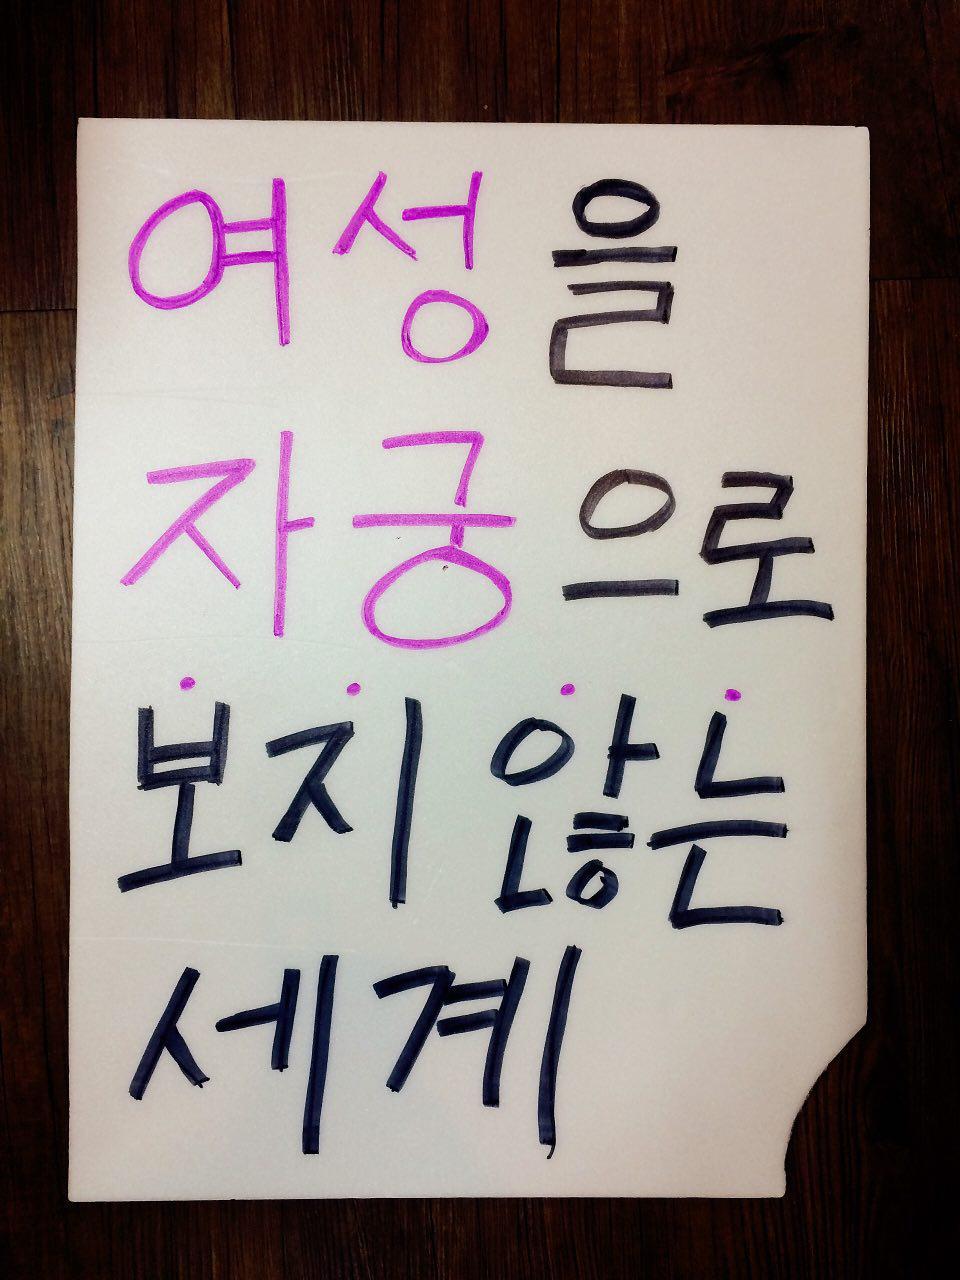 여성을
자궁으로
보지 않는
세계